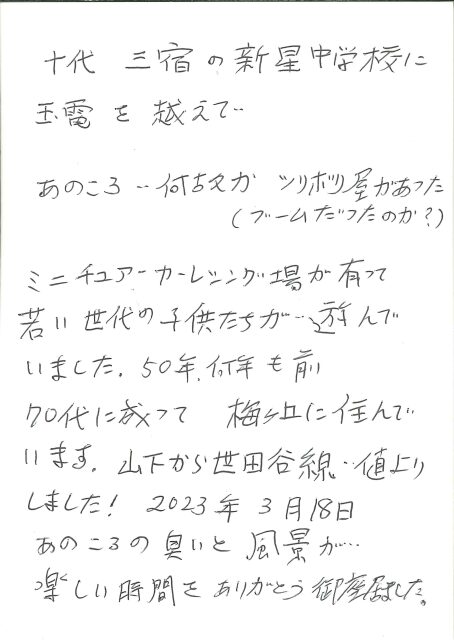 十代 三宿の新星中学校に
玉電を越えて‥
あのころ‥何故か ツリボリ屋があった
(ブームだったのか?)
ミニチュアーカーレーシング場が有って
若い世代の子供たちが‥遊んで
いました。50年、何年も前
70代に成って 梅ヶ丘に住んで
います。山下から世田谷線‥値より
しました! 2023年3月18日
あのころの臭いと風景が…
楽しい時間をありがとう御座居ました。